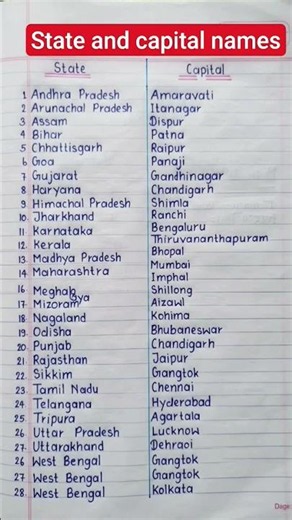 State and capital names
State Capital
1 Andhra Pradesh Amaravati
2 Arunachal Pradesh Itanagar
3 Assam Dispur
4 Bihar Patna
5 Chhattisgarh Raipur
6 Goa Panaji
7 Gujarat Gandhinagar
8 Haryana Chandigarh
9 Himachal Pradesh Shimla
10. Jharkhand Ranchi
11. Karnataka Bengaluru
12. Kerala Thiruvananthapuram
13. Madhya Pradesh Bhopal
14 Maharashtra Mumbai
Imphal
16 Meghalaya Shillong
17 Mizoram Aizawl
18 Nagaland Kohima
19 Odisha Bhubaneswar
20 Punjab Chandigarh
21. Rajasthan Jaipur
22. Sikkim Gangtok
23. Tamil Nadu Chennai
24 Telangana Hyderabad
25. Tripura Agartala
26 Uttar Pradesh Lucknow
27. Uttarakhand Dehraoi
26 West Bengal Gangtok
27 West Bengal Gangtok
28. West Bengal Kolkata